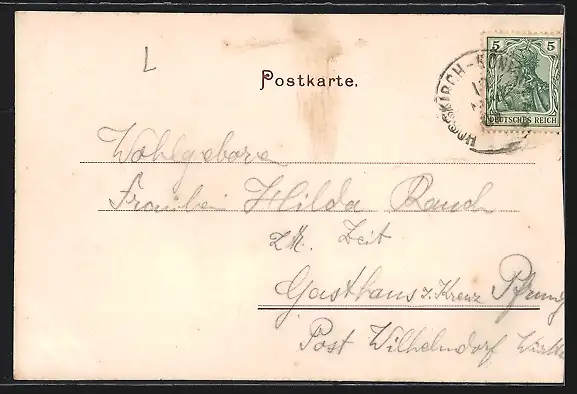 L
Postkarte.
5 5
DEUTSCHES REICH
HOSSKIRCH-KÖNI
Wohlgebore
Fräulein Hilda Rauch
z. Zt. Zeit
Gasthaus z. Kreuz Pfrung
Post Wilhelmdorf